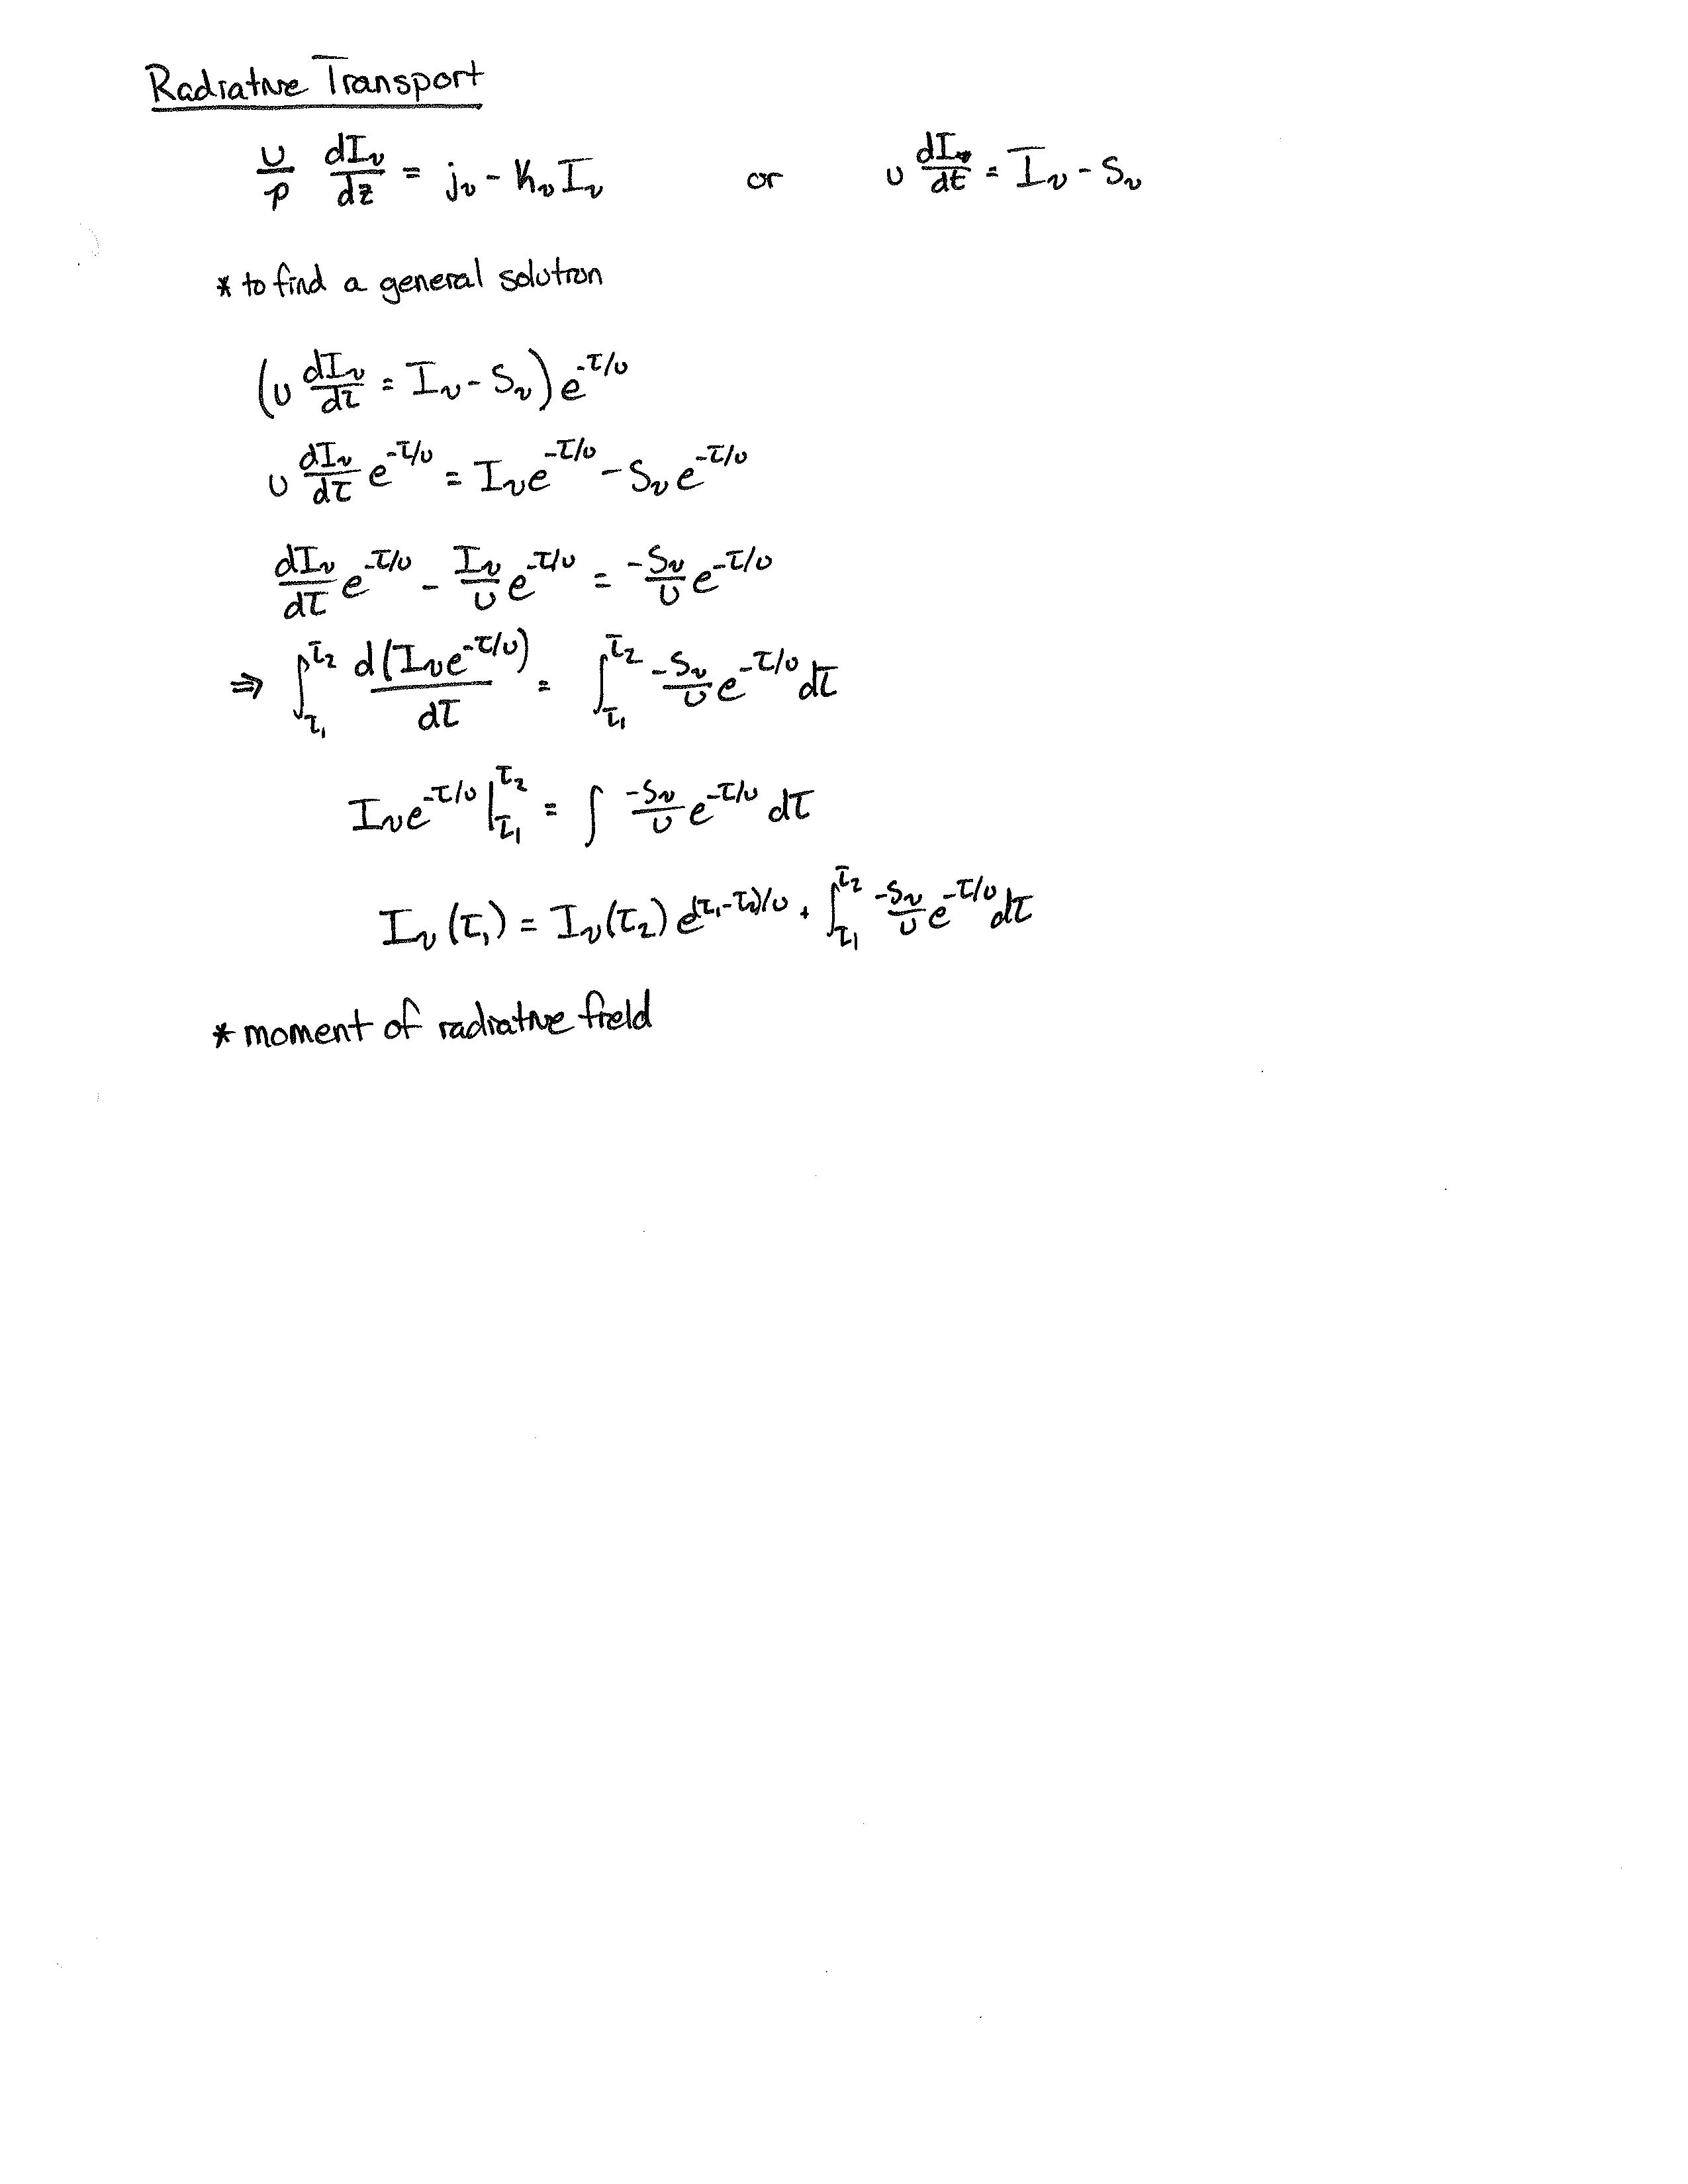 Radiative Transport
u/ρ dI_ν/dz = j_ν - K_ν I_ν or u dI_ν/dt = I_ν - S_ν
* to find a general solution
(u dI_ν/dτ = I_ν - S_ν) e^{-τ/u}
u dI_ν/dτ e^{-τ/u} = I_ν e^{-τ/u} - S_ν e^{-τ/u}
dI_ν/dτ e^{-τ/u} - I_ν/u e^{-τ/u} = -S_ν/u e^{-τ/u}
⇒ ∫_{τ_1}^{τ_2} d(I_ν e^{-τ/u})/dτ = ∫_{τ_1}^{τ_2} -S_ν/u e^{-τ/u} dτ
I_ν e^{-τ/u} |_{τ_1}^{τ_2} = ∫ -S_ν/u e^{-τ/u} dτ
I_ν(τ_1) = I_ν(τ_2) e^{(τ_1-τ_2)/u} + ∫_{τ_1}^{τ_2} -S_ν/u e^{-τ/u} dτ
* moment of radiative field